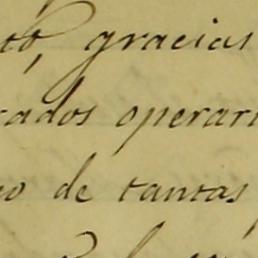 gracias
rados operari
o de tantas